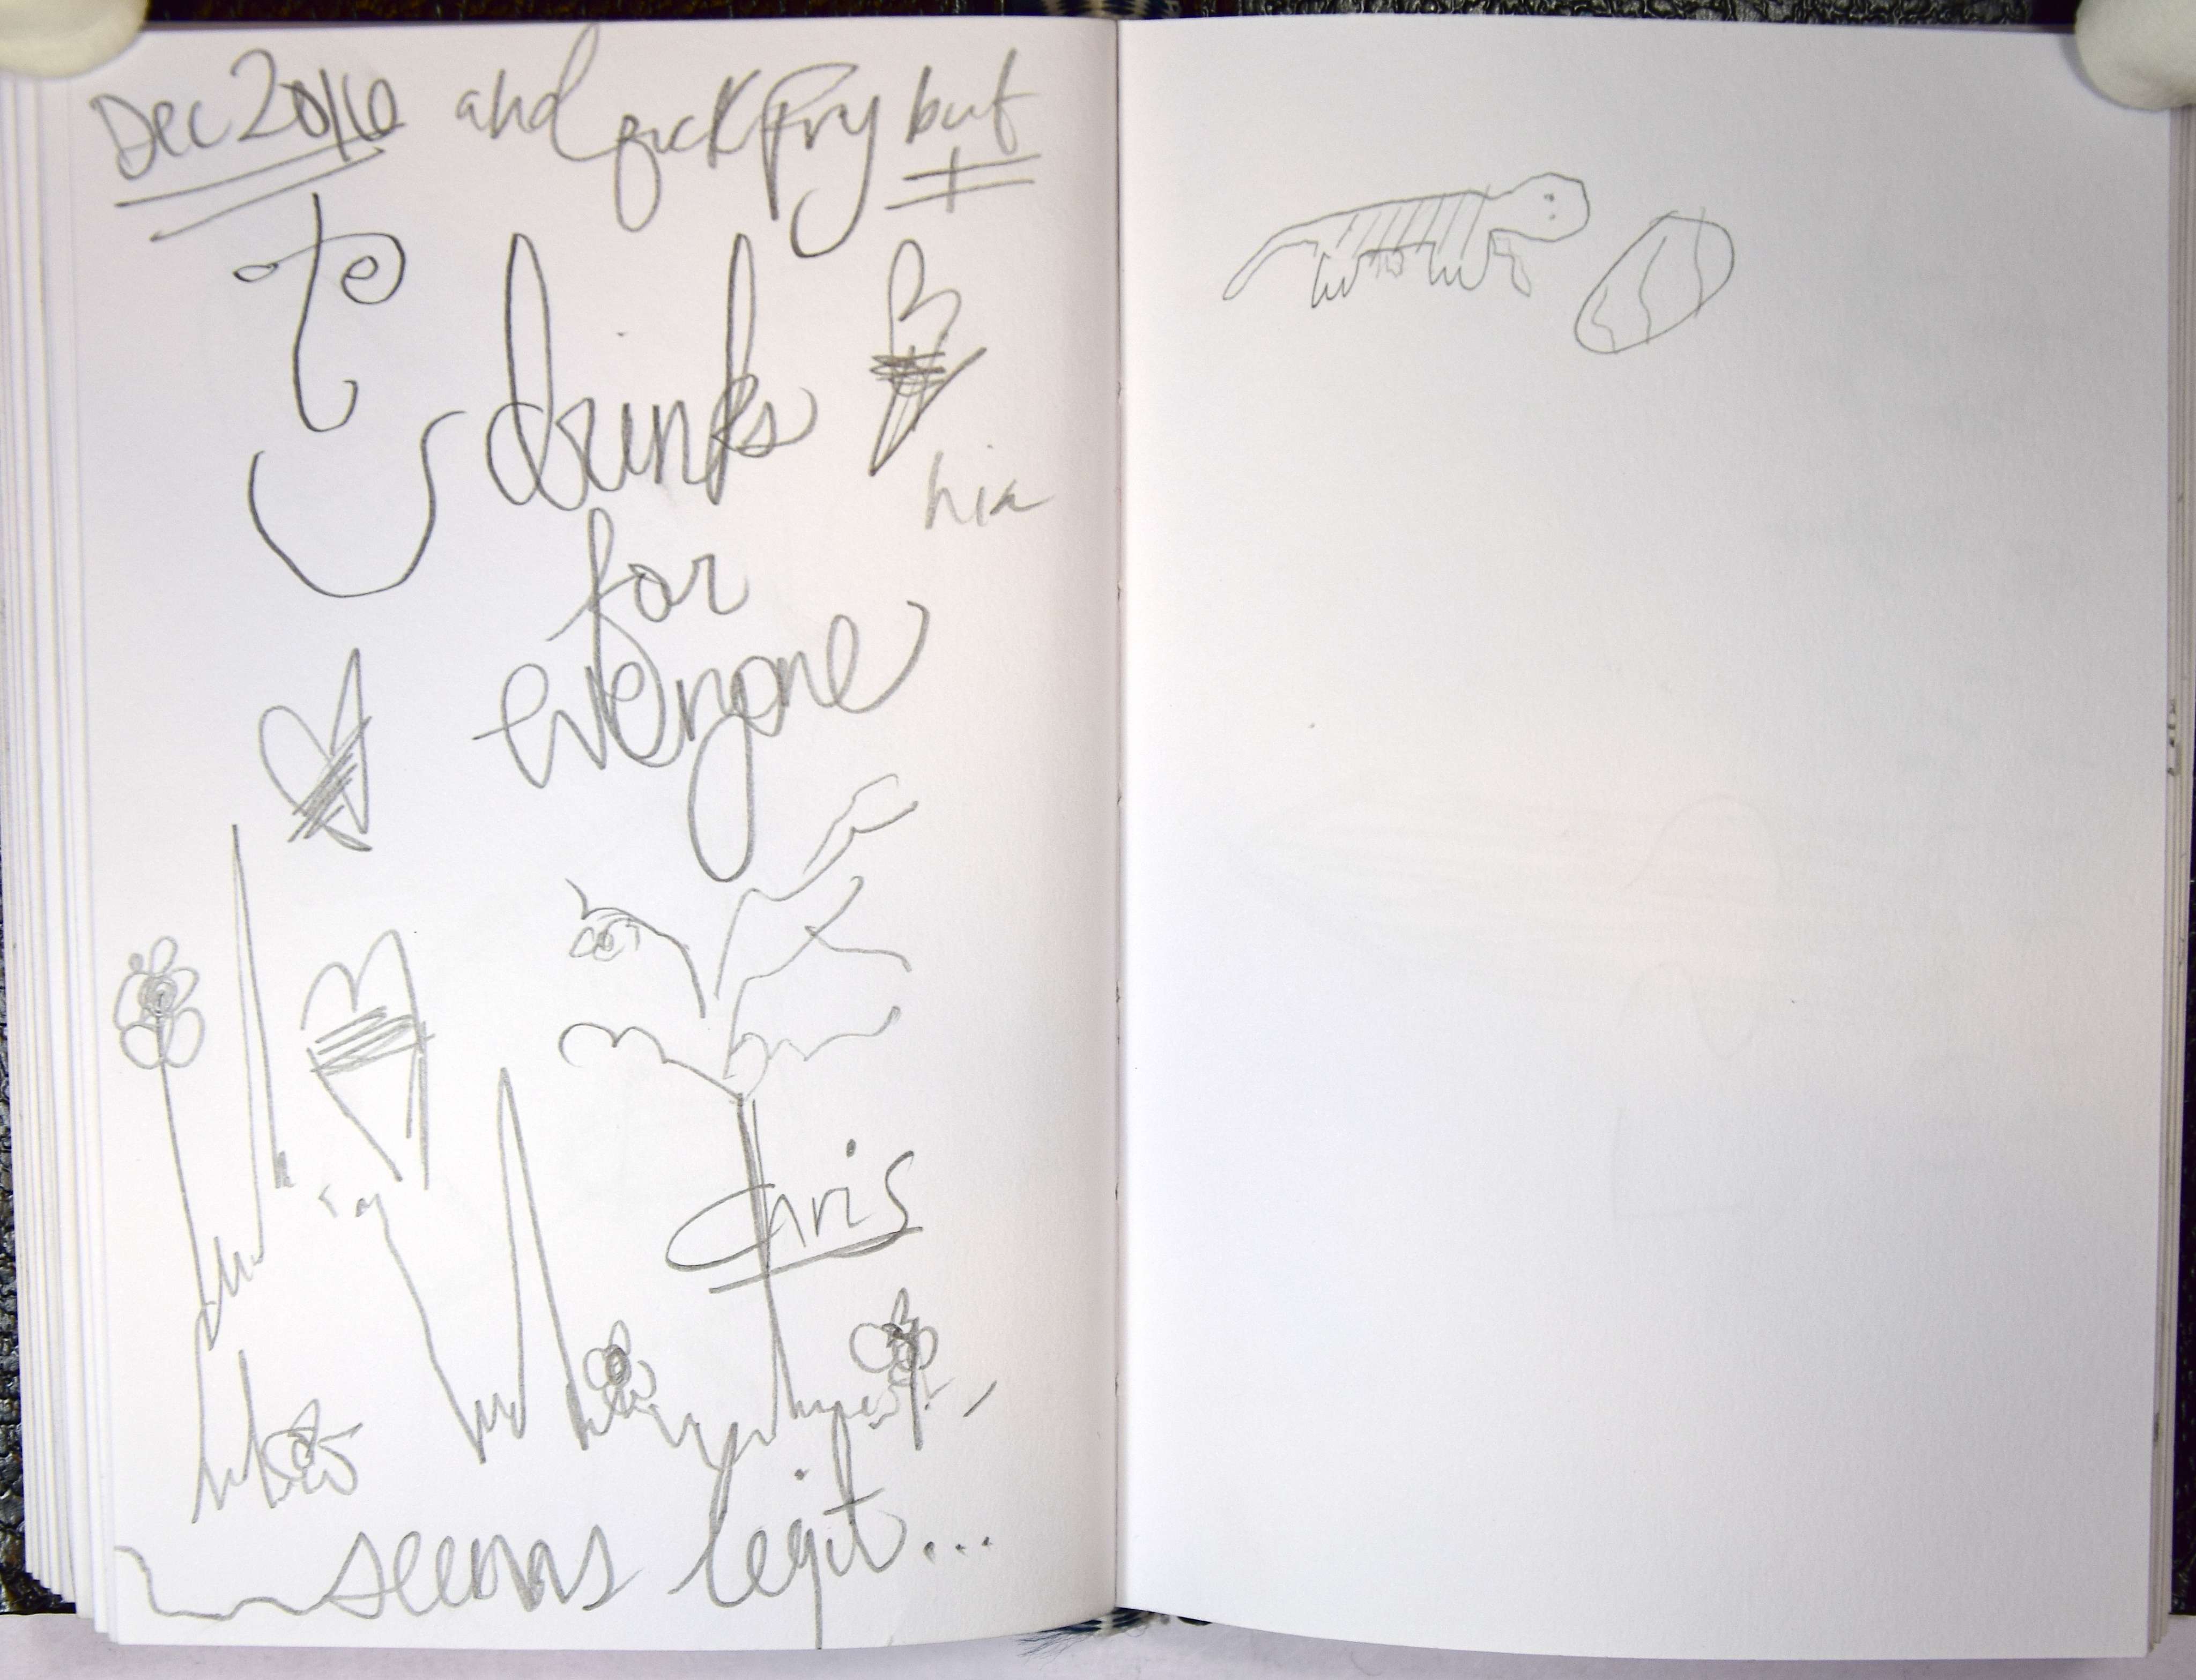 Dec 2016 and fuck Fry but
drinks
for
everyone
Chris
seems legit...